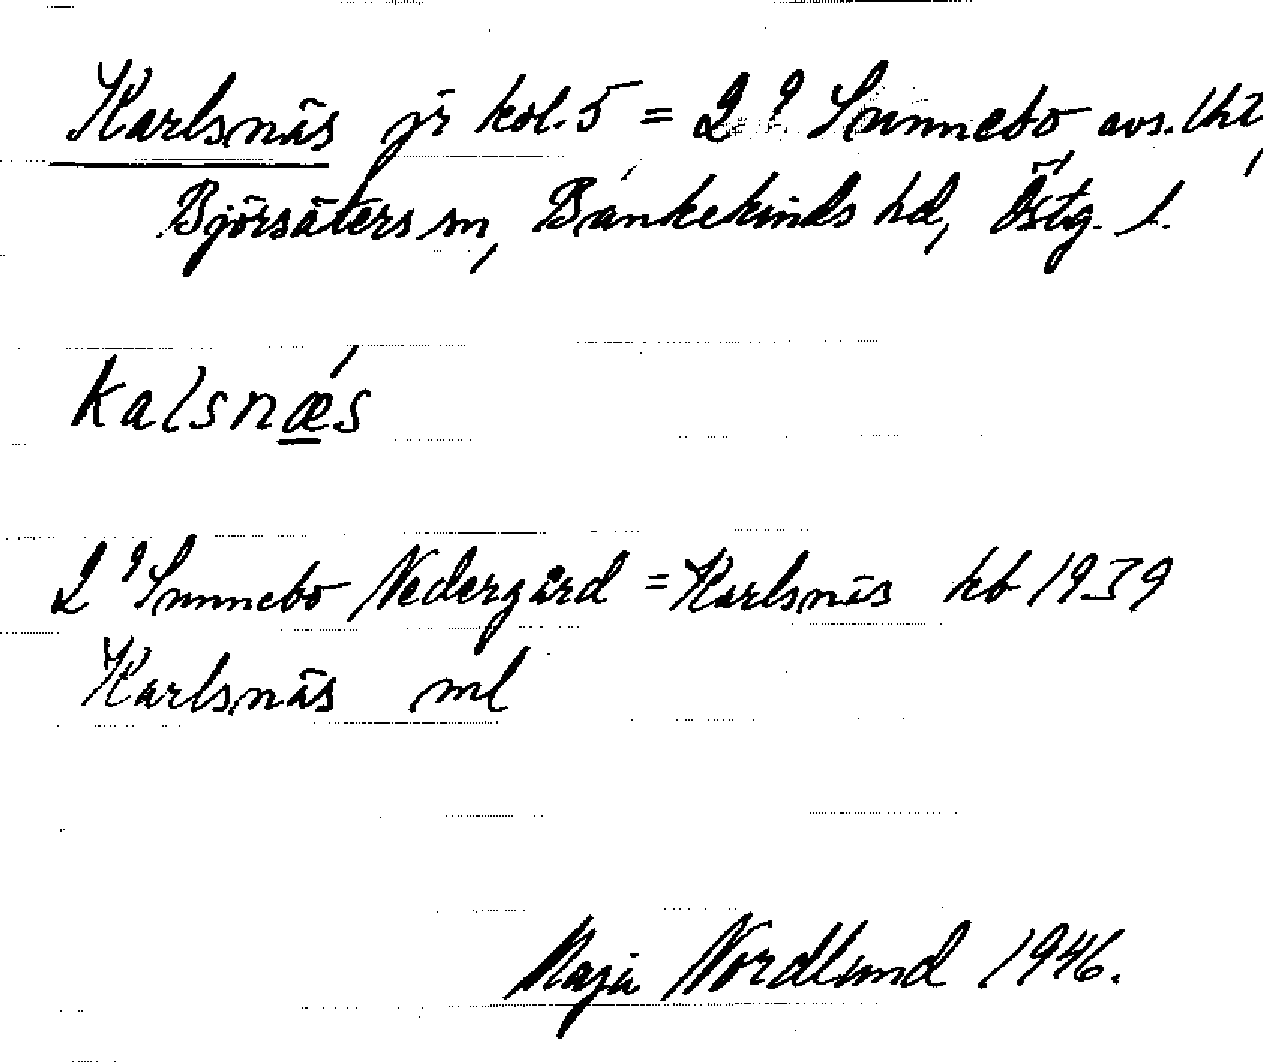 Karlsnäs jr kol. 5 = 2 9 Sunnebo avs. lht,
Björsäters sn, Bánkekinds hd, Östg. l.
kalsnǽs
2 9 Sunnebo Nedergård = Karlsnäs kb 1939
Karlsnäs ml
Maja Nordlund 1946.